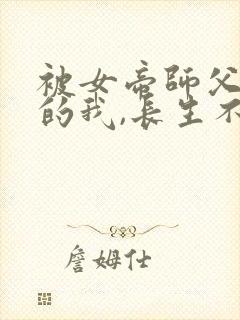 被女帝師父
的我,長生不
詹姆仕